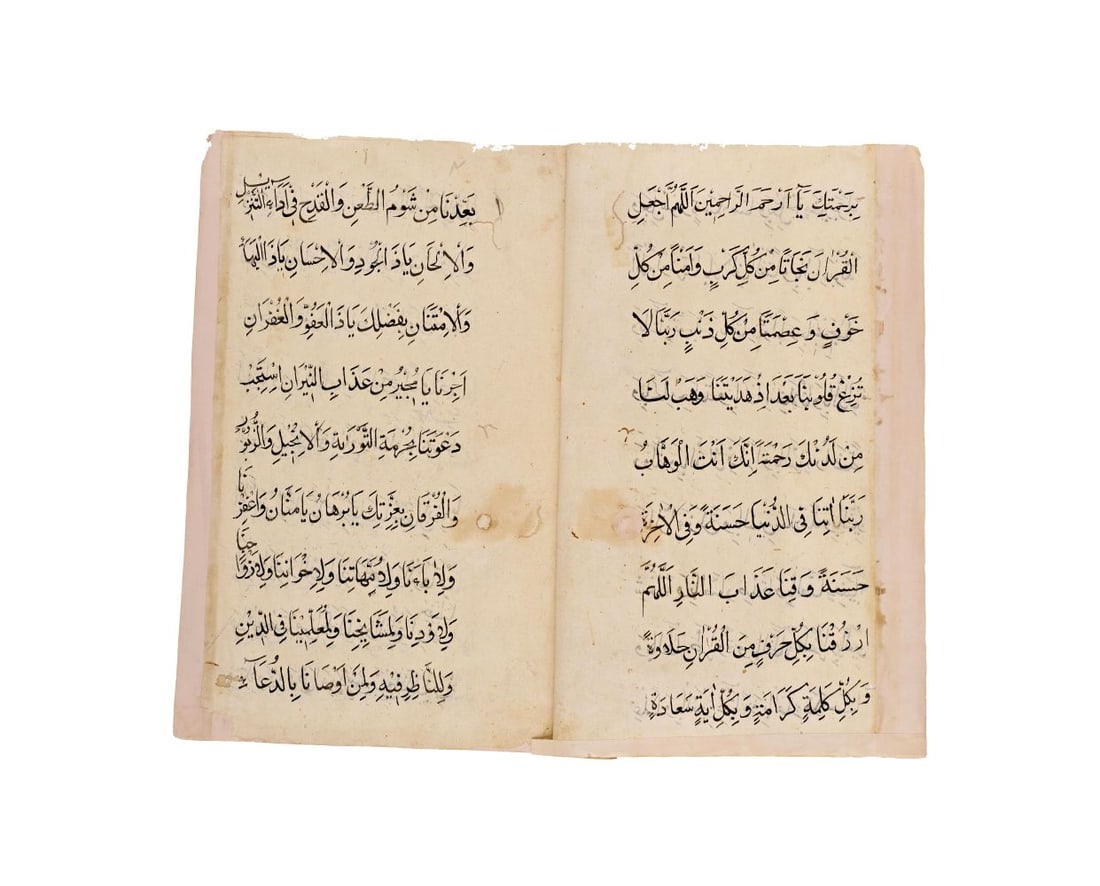 بِرَحْمَتِكَ يَآ اَرْحَمَ الرَّاحِمِيْنَ اَللّٰهُمَّ اجْعَلِ
الْقُرْاٰنَ نَجَاتًا مِنْ كُلِّ كَرْبٍ وَاَمْنًا مِنْ كُلِّ
خَوْفٍ وَعِصْمَتًا مِنْ كُلِّ ذَنْبٍ رَبَّنَا لَا
تُزِغْ قُلُوْبَنَا بَعْدَ اِذْ هَدَيْتَنَا وَهَبْ لَنَا
مِنْ لَدُنْكَ رَحْمَةً اِنَّكَ اَنْتَ الْوَهَّابُ
رَبَّنَا اٰتِنَا فِى الدُّنْيَا حَسَنَةً وَفِى الْاٰخِرَةِ
حَسَنَةً وَقِنَا عَذَابَ النَّارِ اَللّٰهُمَّ
ارْزُقْنَا بِكُلِّ حَرْفٍ مِنَ الْقُرْاٰنِ حَلَاوَةً
وَبِكُلِّ كَلِمَةٍ كَرَامَةً وَبِكُلِّ اٰيَةٍ سَعَادَةً
بَعِّدْنَا مِنْ شَوْمُ الطَّعْنِ وَالْقَدْحِ فِىْ اَدَآءِ التَّنْزِيْلِ
وَالْاِلْحَانِ يَاذَ الْجُوْدِ وَالْاِحْسَانِ يَاذَ الْبَهَآءِ
وَالْاِمْتِنَانِ بِفَضْلِكَ يَاذَ الْعَفُوِّ وَالْغُفْرَانِ
اَجِرْنَا يَا مُجِيْرُ مِنْ عَذَابِ النِّيْرَانِ اِسْتَجِبْ
دَعْوَتَنَا بِحُرْمَةِ التَّوْرَايةِ وَالْاِنْجِيْلِ وَالزَّبُوْرِ
وَالْفُرْقَانِ بِعِزَّتِكَ يَا بُرْهَانُ يَا مَنَّانُ وَاغْفِرْلَنَا
وَلِاٰبَآءِنَا وَلِاُمَّهَاتِنَا وَلِاِخْوَانِنَا وَلِاَزْوَاجِنَا
وَلِاَوْلَادِنَا وَلِمَشَايِخِنَا وَلِمُعَلِّمِيْنَا فِى الدِّيْنِ
وَلِلنَّاظِرِ فِيْهِ وَلِمَنْ اَوْصَانَا بِالدُّعَآءِ